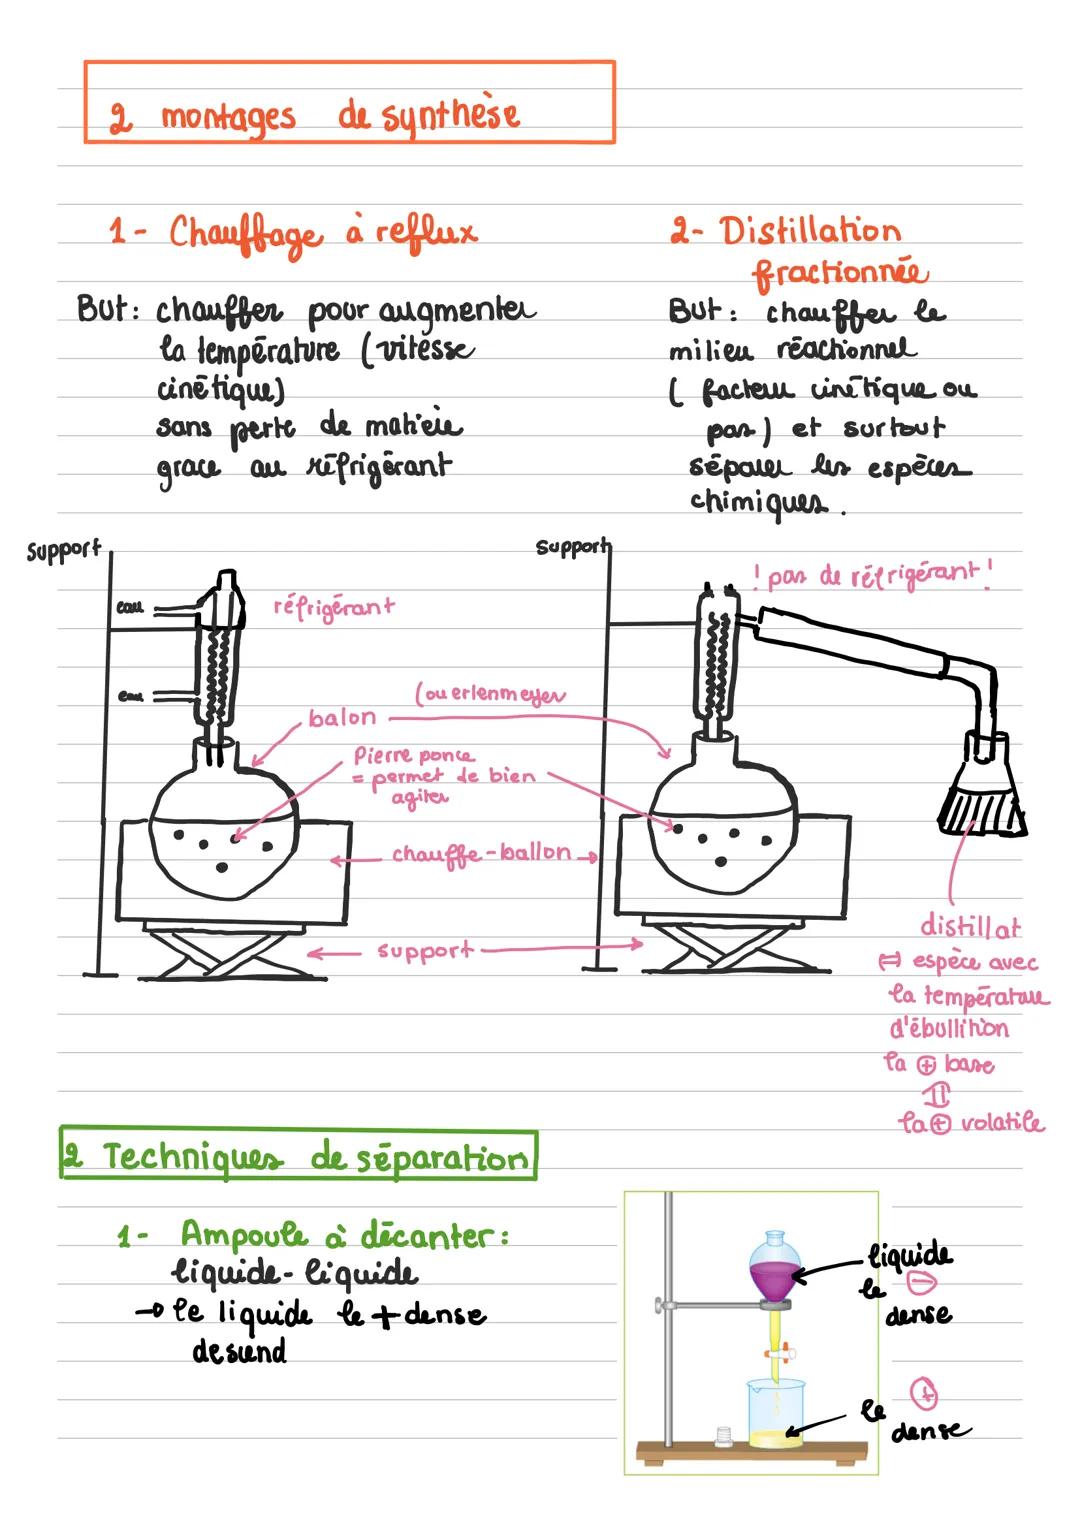 2 montages de synthèse
1- Chauffage à reflux
But: chauffer pour augmenter
la température (vitesse
cinétique)
sans perte de matière
grace au réfrigérant
2- Distillation
fractionnée
But: chauffer le
milieu réactionnel
( facteur cinétique ou
pas) et surtout
séparer les espèces
chimiques.
support
eau
eau
réfrigérant
support
! pas de réfrigérant!
(ou erlenmeyer
balon
Pierre ponce
= permet de bien
agiter
chauffe-ballon
support
distillat
⇔ espèce avec
la température
d'ébullition
la ⊕ basse
⇕
la ⊕ volatile
2 Techniques de séparation
1- Ampoule à décanter:
liquide-liquide
→ le liquide le + dense
descend
liquide
le ⊖
dense
le ⊕
dense